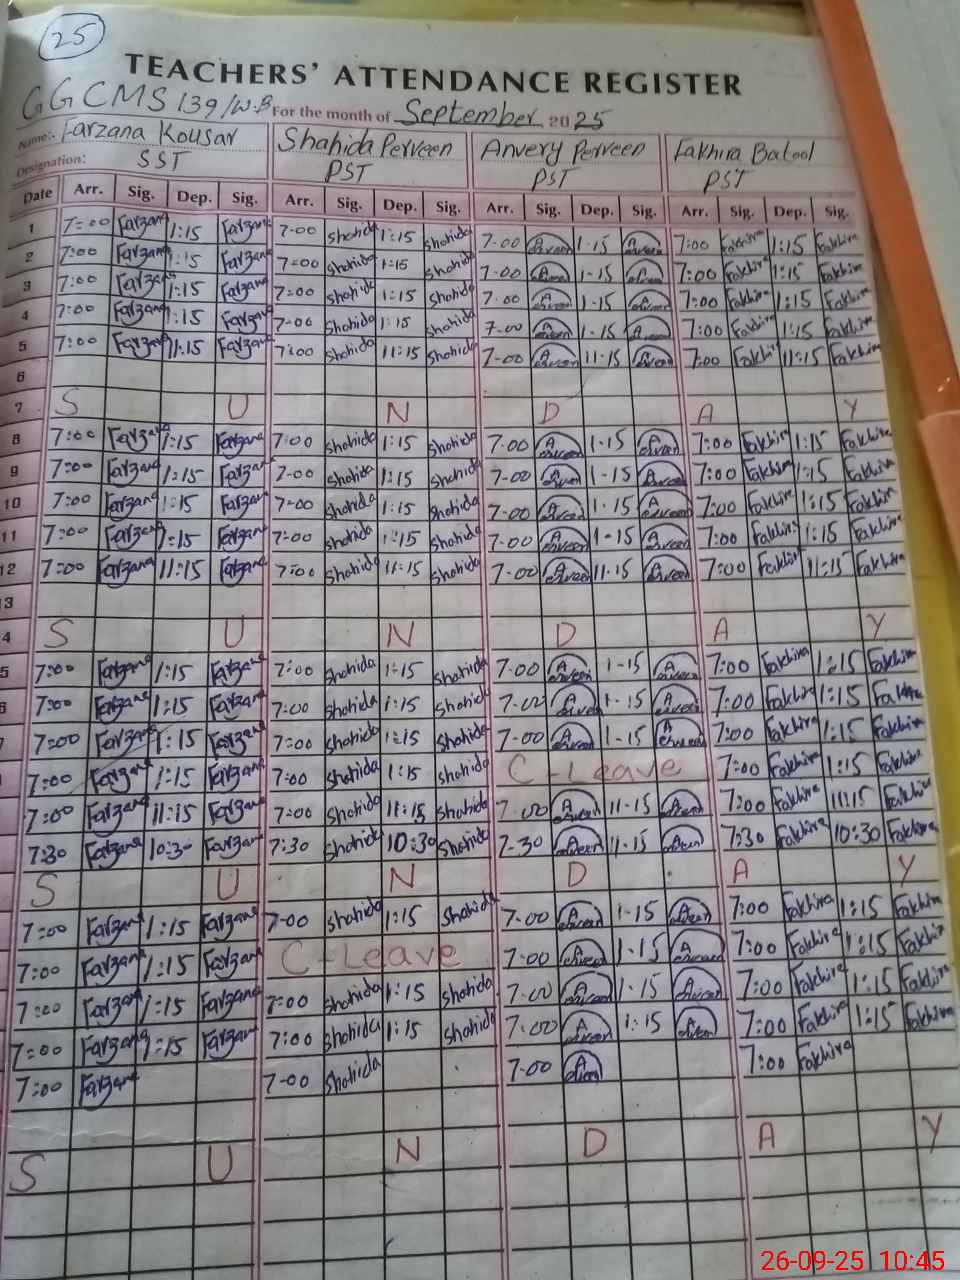 25
TEACHERS' ATTENDANCE REGISTER
GGCMS 139/W.B For the month of September 2025
Name:- Farzana Kousar Shahida Perveen Anvery Perveen Fakhira Batool
Designation: SST PST PST PST
Date Arr. Sig. Dep. Sig. Arr. Sig. Dep. Sig. Arr. Sig. Dep. Sig. Arr. Sig. Dep. Sig.
1 7=00 Farzana 1:15 Farzana 7-00 Shahida 1:15 Shahida 7-00 1-15 7:00 Fakhira 1:15 Fakhira
2 7:00 Farzana 1:15 Farzana 7=00 Shahida 1:15 Shahida 7-00 1-15 7:00 Fakhira 1:15 Fakhira
3 7:00 Farzana 1:15 Farzana 7=00 Shahida 1:15 Shahida 7.00 1-15 7:00 Fakhira 1:15 Fakhira
4 7:00 Farzana 1:15 Farzana 7-00 Shahida 1:15 Shahida 7-00 1-15 7:00 Fakhira 1:15 Fakhira
5 7:00 Farzana 11:15 Farzana 7:00 Shahida 11:15 Shahida 7-00 11-15 7:00 Fakhira 11:15 Fakhira
6
7 S U N D A Y
8 7:00 Farzana 1:15 Farzana 7:00 Shahida 1:15 Shahida 7-00 1-15 7:00 Fakhira 1:15 Fakhira
9 7:00 Farzana 1:15 Farzana 7-00 Shahida 1:15 Shahida 7-00 1-15 7:00 Fakhira 1:15 Fakhira
10 7:00 Farzana 1:15 Farzana 7-00 Shahida 1:15 Shahida 7-00 1-15 7:00 Fakhira 1:15 Fakhira
11 7:00 Farzana 1:15 Farzana 7=00 Shahida 1:15 Shahida 7-00 1-15 7:00 Fakhira 1:15 Fakhira
12 7:00 Farzana 11:15 Farzana 7:00 Shahida 11:15 Shahida 7-00 11-15 7:00 Fakhira 11:15 Fakhira
13
4 S U N D A Y
5 7:00 Farzana 1:15 Farzana 7:00 Shahida 1:15 Shahida 7-00 1-15 7:00 Fakhira 1:15 Fakhira
6 7:00 Farzana 1:15 Farzana 7:00 Shahida 1:15 Shahida 7-00 1-15 7:00 Fakhira 1:15 Fakhira
7 7:00 Farzana 1:15 Farzana 7:00 Shahida 1:15 Shahida 7-00 1-15 7:00 Fakhira 1:15 Fakhira
7:00 Farzana 1:15 Farzana 7:00 Shahida 1:15 Shahida C-Leave 7:00 Fakhira 1:15 Fakhira
7:00 Farzana 11:15 Farzana 7:00 Shahida 11:15 Shahida 7-00 11-15 7:00 Fakhira 11:15 Fakhira
7:30 Farzana 10:30 Farzana 7:30 Shahida 10:30 Shahida 7-30 11-15 7:30 Fakhira 10:30 Fakhira
S U N D A Y
7:00 Farzana 1:15 Farzana 7-00 Shahida 1:15 Shahida 7-00 1-15 7:00 Fakhira 1:15 Fakhira
7:00 Farzana 1:15 Farzana C-Leave 7:00 1-15 7:00 Fakhira 1:15 Fakhira
7:00 Farzana 1:15 Farzana 7:00 Shahida 1:15 Shahida 7-00 1-15 7:00 Fakhira 1:15 Fakhira
7:00 Farzana 1:15 Farzana 7:00 Shahida 1:15 Shahida 7-00 1:15 7:00 Fakhira 1:15 Fakhira
7:00 Farzana 7-00 Shahida 7-00 7:00 Fakhira
S U N D A Y
26-09-25 10:45